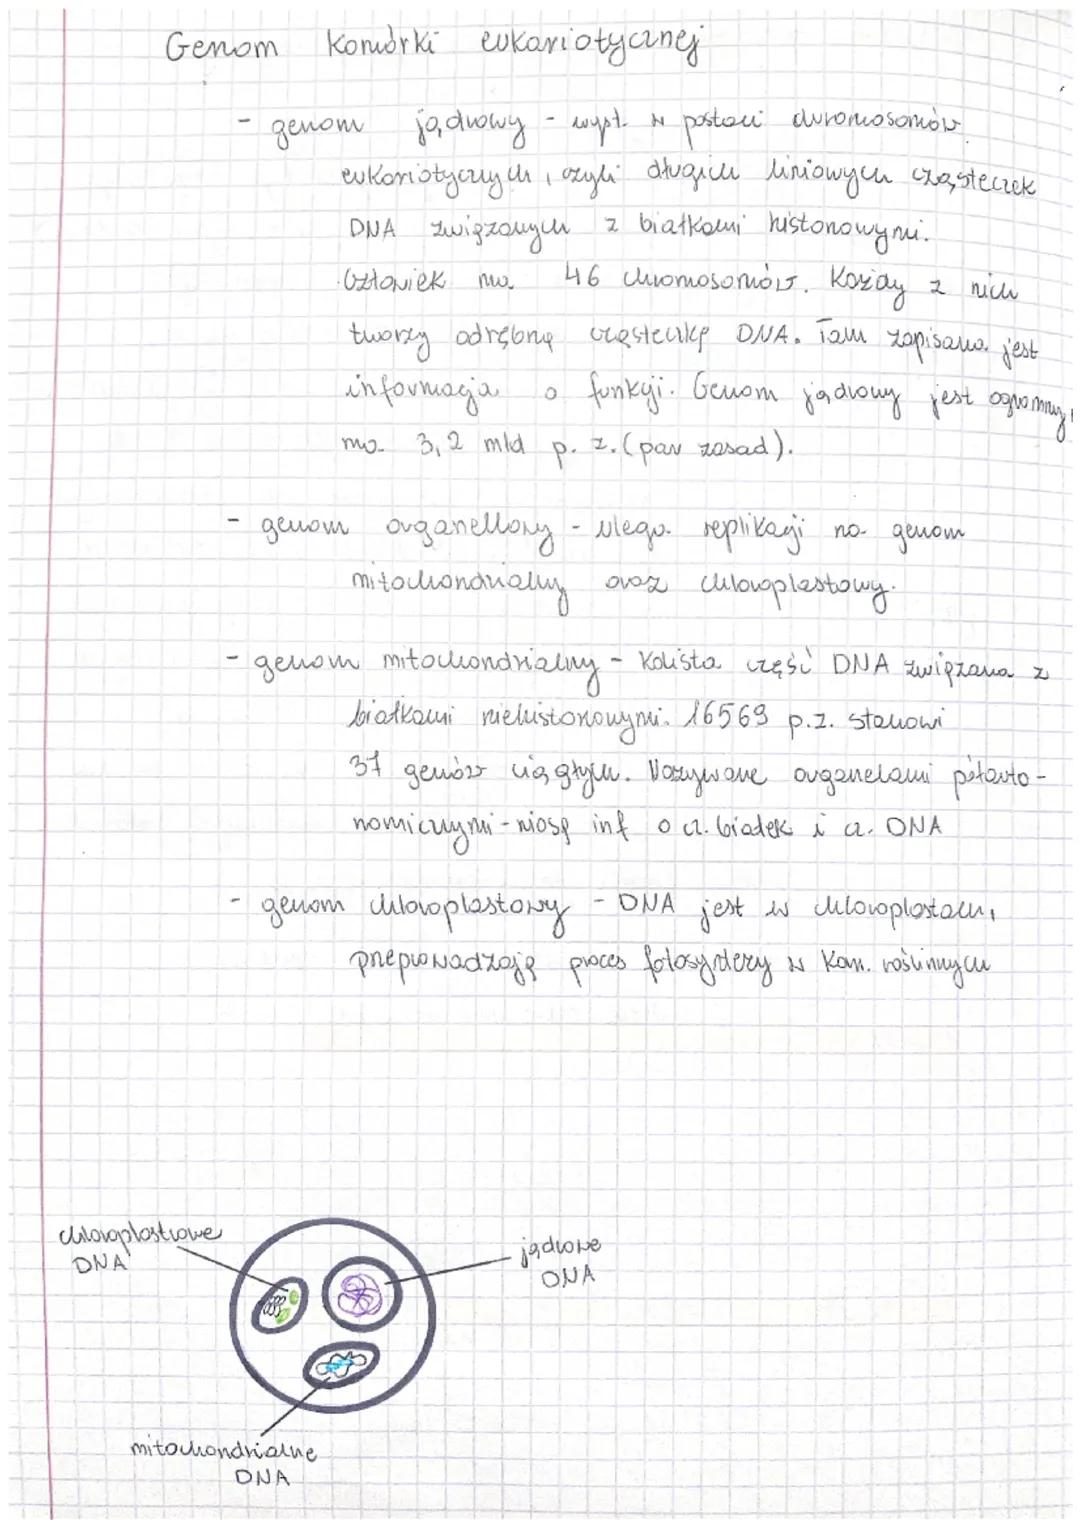 Genom komórki eukariotycznej
- genom jądrowy - wyst. w postaci chromosomów
eukariotycznych, czyli długich liniowych cząsteczek
DNA związanych z białkami histonowymi.
Człowiek ma 46 chromosomów. Każdy z nich
tworzy odrębną cząsteczkę DNA. Tam zapisana jest
informacja o funkcji. Genom jądrowy jest ogromny,
ma 3,2 mld p. z. (par zasad).
- genom organellowy - ulega replikacji na genom
mitochondrialny oraz chloroplastowy.
- genom mitochondrialny - kolista część DNA związana z
białkami niehistonowymi. 16569 p.z. stanowi
37 genów ciągłych. Nazywane organelami półauto-
nomicznymi - niosą inf o cz. białek i cz. DNA
- genom chloroplastowy - DNA jest w chloroplastach,
przeprowadzają proces fotosyntezy w kom. roślinnych
chloroplastowe
DNA
jądrowe
DNA
mitochondrialne
DNA